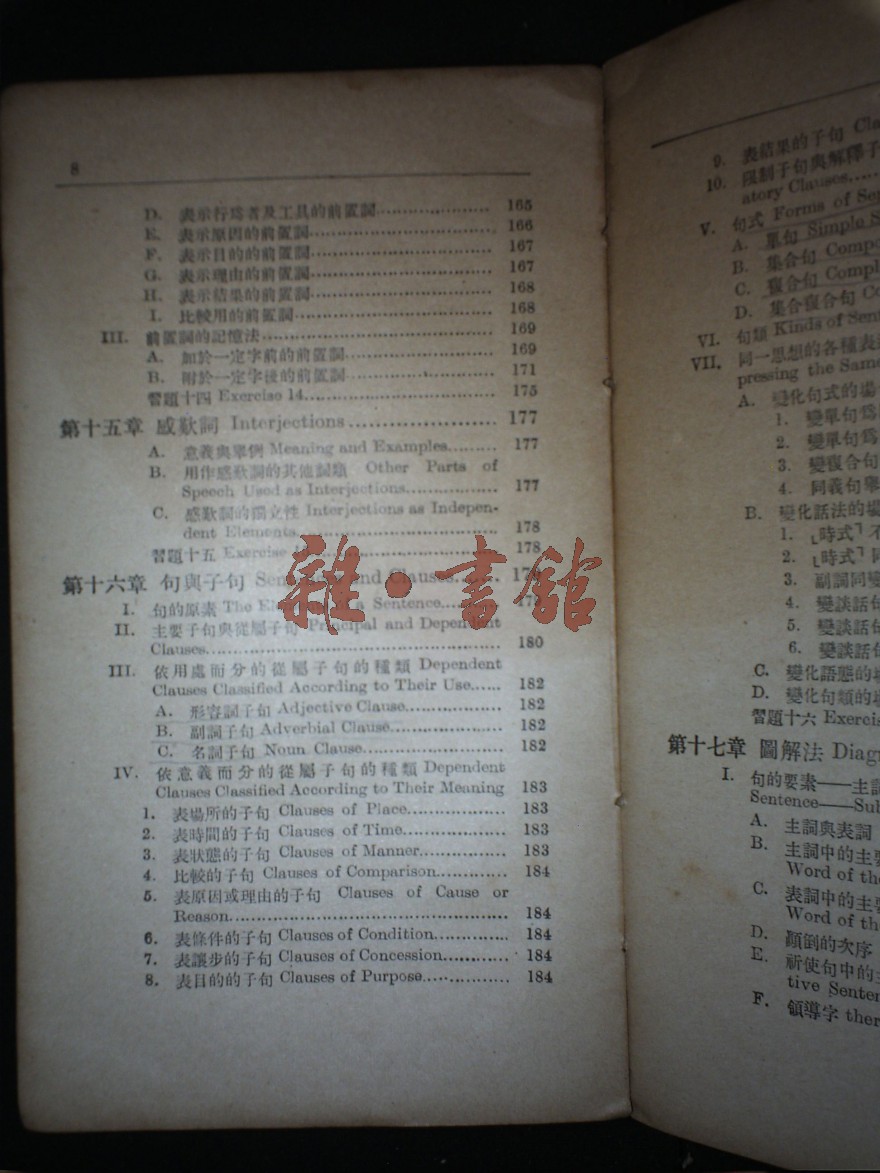 8
D. 表示行爲者及工具的前置詞 165
E. 表示原因的前置詞 166
F. 表示目的的前置詞 167
G. 表示理由的前置詞 167
H. 表示結果的前置詞 168
I. 比較用的前置詞 168
III. 前置詞的記憶法 169
A. 加於一定字前的前置詞 169
B. 附於一定字後的前置詞 171
習題十四 Exercise 14 175
第十五章 感歎詞 Interjections 177
A. 意義與舉例 Meaning and Examples 177
B. 用作感歎詞的其他詞類 Other Parts of
Speech Used as Interjections 177
C. 感歎詞的獨立性 Interjections as Indepen-
dent Elements 178
習題十五 Exercise 178
第十六章 句與子句 and Clauses
I. 句的原素 The of a Sentence
II. 主要子句與從屬子句 Principal and Dependent
Clauses 180
III. 依用處而分的從屬子句的種類 Dependent
Clauses Classified According to Their Use 182
A. 形容詞子句 Adjective Clause 182
B. 副詞子句 Adverbial Clause 182
C. 名詞子句 Noun Clause 182
IV. 依意義而分的從屬子句的種類 Dependent
Clauses Classified According to Their Meaning 183
1. 表場所的子句 Clauses of Place 183
2. 表時間的子句 Clauses of Time 183
3. 表狀態的子句 Clauses of Manner 183
4. 比較的子句 Clauses of Comparison 184
5. 表原因或理由的子句 Clauses of Cause or
Reason 184
6. 表條件的子句 Clauses of Condition 184
7. 表讓步的子句 Clauses of Concession 184
8. 表目的的子句 Clauses of Purpose 184
雜·書館
9. 表結果的子句 Cla
10. 限制子句與解釋子
atory Clauses
V. 句式 Forms of Se
A. 單句 Simple S
B. 集合句 Compo
C. 複合句 Compl
D. 集合複合句 Co
VI. 句類 Kinds of Sen
VII. 同一思想的各種表
pressing the Same
A. 變化句式的場
1. 變單句爲
2. 變單句爲
3. 變複合句
4. 同義句
B. 變化話法的場
1. 「時式」不
2. 「時式」同
3. 副詞同變
4. 變談話句
5. 變談話句
6. 變談話句
C. 變化語態的場
D. 變化句類的場
習題十六 Exercis
第十七章 圖解法 Diagr
I. 句的要素——主詞
Sentence——Sub
A. 主詞與表詞
B. 主詞中的主要
Word of the
C. 表詞中的主要
Word of th
D. 顚倒的次序
E. 祈使句中的主
tive Senten
F. 領導字 ther